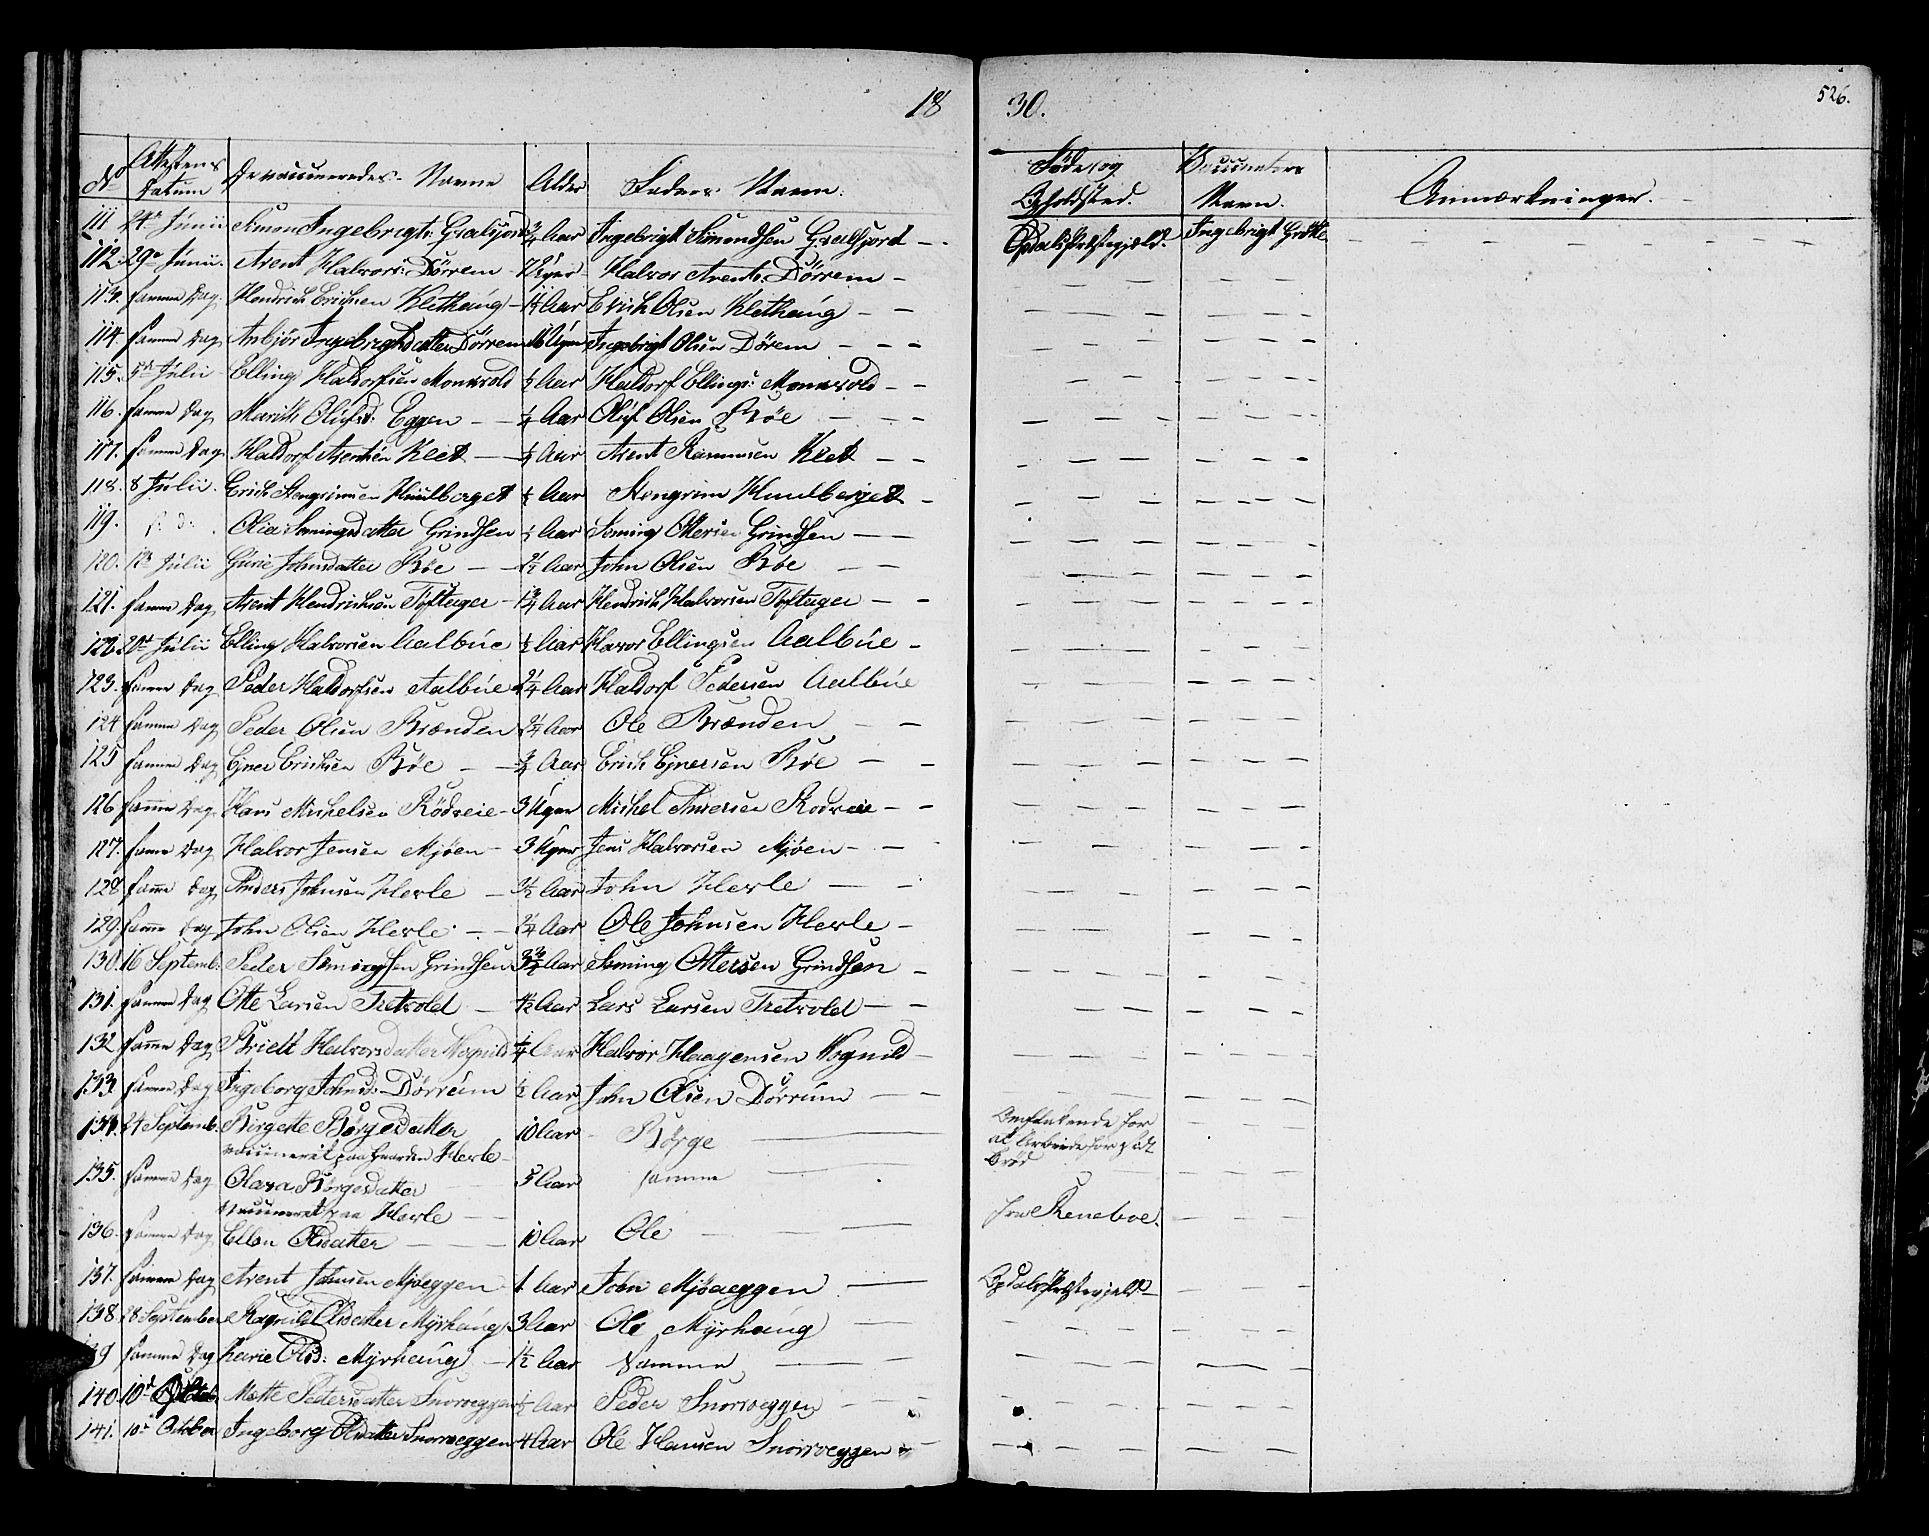 18 30. 526.
No Attestens Datum De vaccineredes Navne Alder Faders Navn. Føde og Opholdsted. Vaccinateurs Navn. Anmærkninger.
111 24de Junii Simon Ingebrigts: Gsalsjord 3/4 Aar Ingebrigt Simondsen Opdals Præstegjeld. Ingebrigt Grötte
112. 29de Junii. Arent Halvors: Dørrem Halvor Arents: Dørrem
113. samme Dag. Hendrich Erichsen Klethaug Aar Erich Olsen Klethaug
114 samme Dag Anbjør Ingebrigtsdatter Dørrem 16 Uger Ingebrigt Olsen Dørem
115. 5te Julii Elling Haldorsen Aar Haldor Ellings:
116. samme Dag Marith Olufsd: Eggen Aar Oluf Olsen Bøe
117. samme Dag. Haldor Arentsen Kleet Aar Arent Rasmusen Kleet
118. 8 Julii. Erich Stengrimsen Aar Stengrim
119. s: d: Olia Semingsdatter Grindsen Aar Seming Ottersen Grindsen
120. Julii Gurie Johnsdatter Bøe Aar John Olsen Bøe
121. samme Dag Arent Hendrichsen Toftager 1 3/4 Aar Hendrich Halvorsen Toftager
122. 20de Julii Elling Halvorsen Aalbue 1/2 Aar Havor Ellingsen Aalbue
123. samme Dag Peder Haldorsen Aalbue Aar Haldor Pedersen Aalbue
124 samme Dag Peder Olsen Brænden Aar Ole Brænden
125 samme Dag Ejner Erichsen Bøe 3/4 Aar Erich Ejnersen Bøe
126 samme Dag. Hans Michelsen Rødveie 3 Uger Michel Rodveie
127. samme Dag Halvor Jensen Mjøen 3 Uger Jens Halvorsen Mjøen
128 samme Dag Anders Johnsen Hevle Aar John Hevle
129. samme Dag John Olsen Hevle Aar Ole Johnsen Hevle
130. 16 Septemb. Peder Semingsen Grindsen Aar Seming Ottersen Grindsen
131. samme Dag Otte Larsen Tretvold Aar Lars Larsen Tretvold
132 samme Dag Brielt Halvorsdatter Vognild 1/4 Aar Halvor Haagensen Vognild
133. samme Dag Ingeborg Johnsd: Dørrum 1/2 Aar John Olsen Dørrum
134. 24 Septemb. Birgette Børgesdatter 10 Aar Børge Omflakkende for
vaccineret paa Gaarden Hevle at Arbeide for sit
Brød
135. samme Dag Olava Børgesdatter 5 Aar samme
Vaccineret paa Hevle fra Reneboe.
136. samme Dag Ellen Olsdatter 10 Aar Ole
137. samme Dag Arent Johnsen Mjøeggen 1 Aar John Mjøaeggen Opdals Præstegjeld
138 28 September Ragnild Olsdatter Myrhaug 3 Aar Ole Myrhaug
139 samme Dag Karie Olsd: Myrhaug 1 1/2 Aar Samme
140. 10de Octob. Mette Pedersdatter Snorveggen 1/2 Aar Peder Snorveggen
141. 10de October Ingeborg Olsdatter Snorroeggen 4 Aar Ole Hansen Snorroeggen